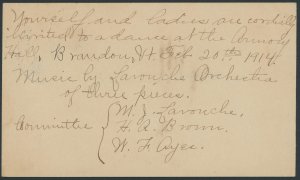 Yourself and ladies are cordially
invited to a dance at the Armory
Hall, Brandon, Vt. Feb 20th 1914.
Music by Lavouche Orchestra
of three pieces.
Committee
M. J. Lavouche.
H. A. Brown.
W. F. Ayes.